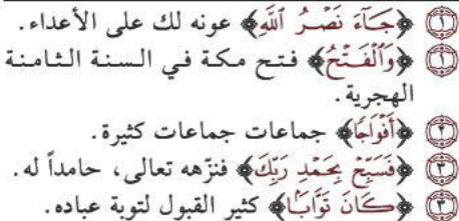 ١ ﴿جَآءَ نَصْرُ ٱللَّهِ﴾ عونه لك على الأعداء.
١ ﴿وَٱلْفَتْحُ﴾ فتح مكة في السنة الثامنة
الهجرية.
٢ ﴿أَفْوَاجًا﴾ جماعات جماعات كثيرة.
٣ ﴿فَسَبِّحْ بِحَمْدِ رَبِّكَ﴾ فنزّهه تعالى، حامداً له.
٣ ﴿كَانَ تَوَّابًا﴾ كثير القبول لتوبة عباده.